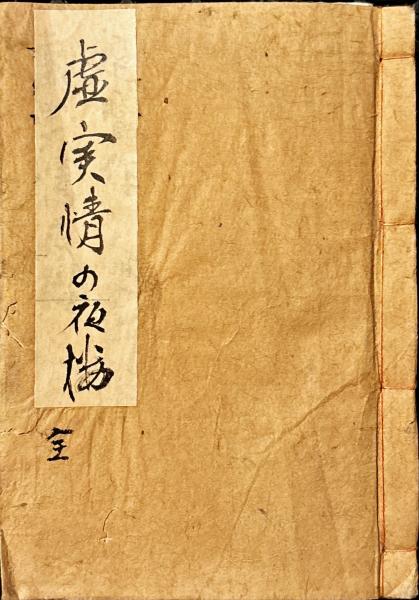 虚実情の夜桜
全